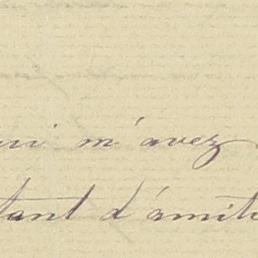 qui m'avez
tant d'amiti